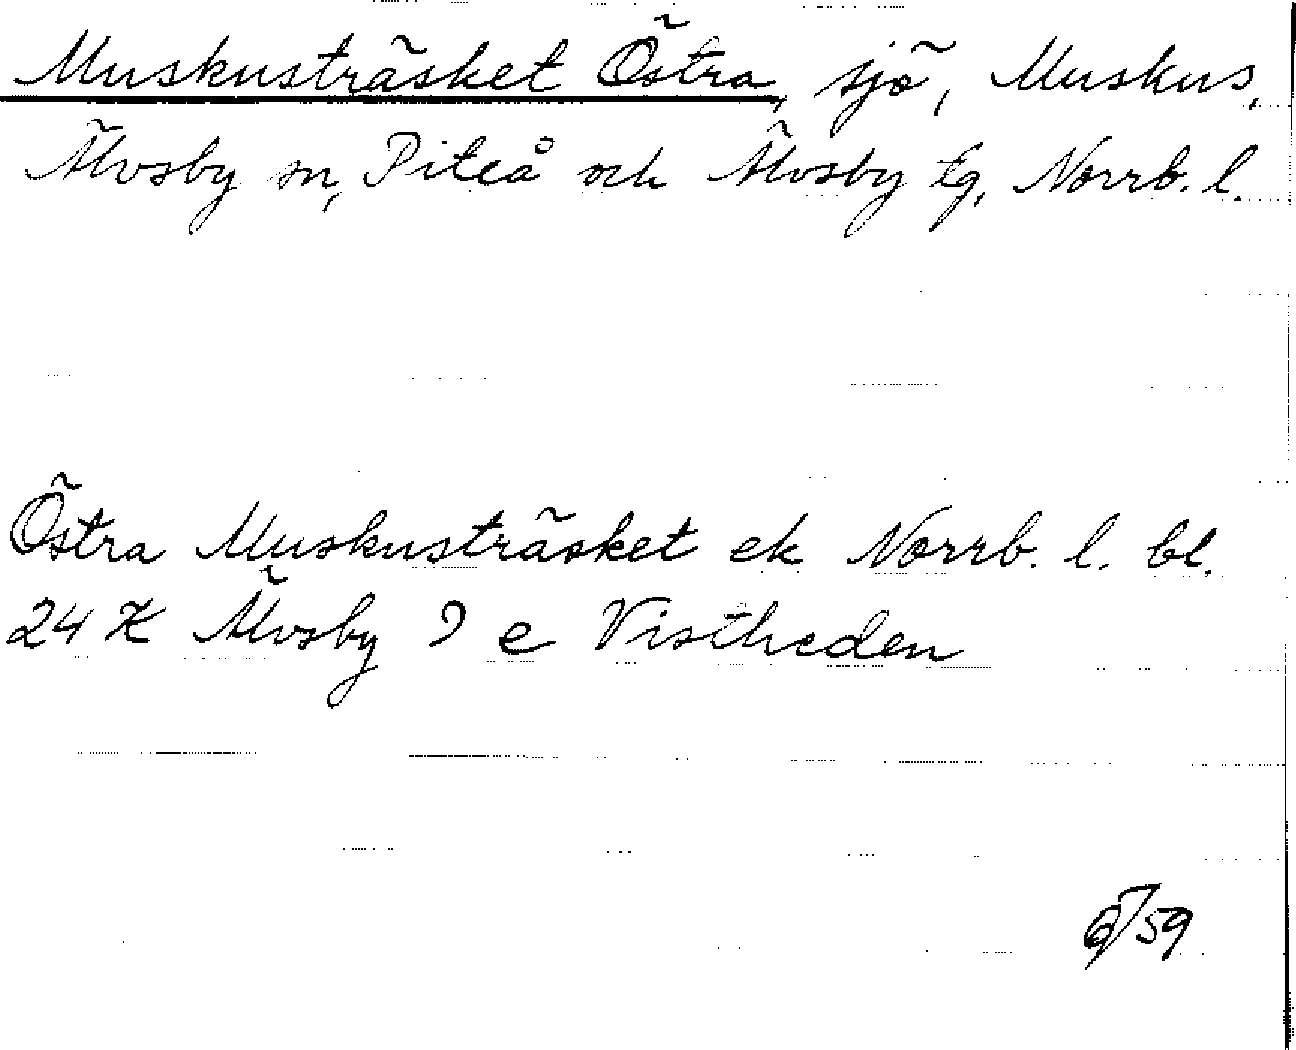 Muskusträsket Östra, sjö, Muskus,
Älvsby sn, Piteå och Älvsby tg, Norrb. l.
Östra Muskusträsket ek Norrb. l. bl.
24 K Älvsby 9 e Vistheden